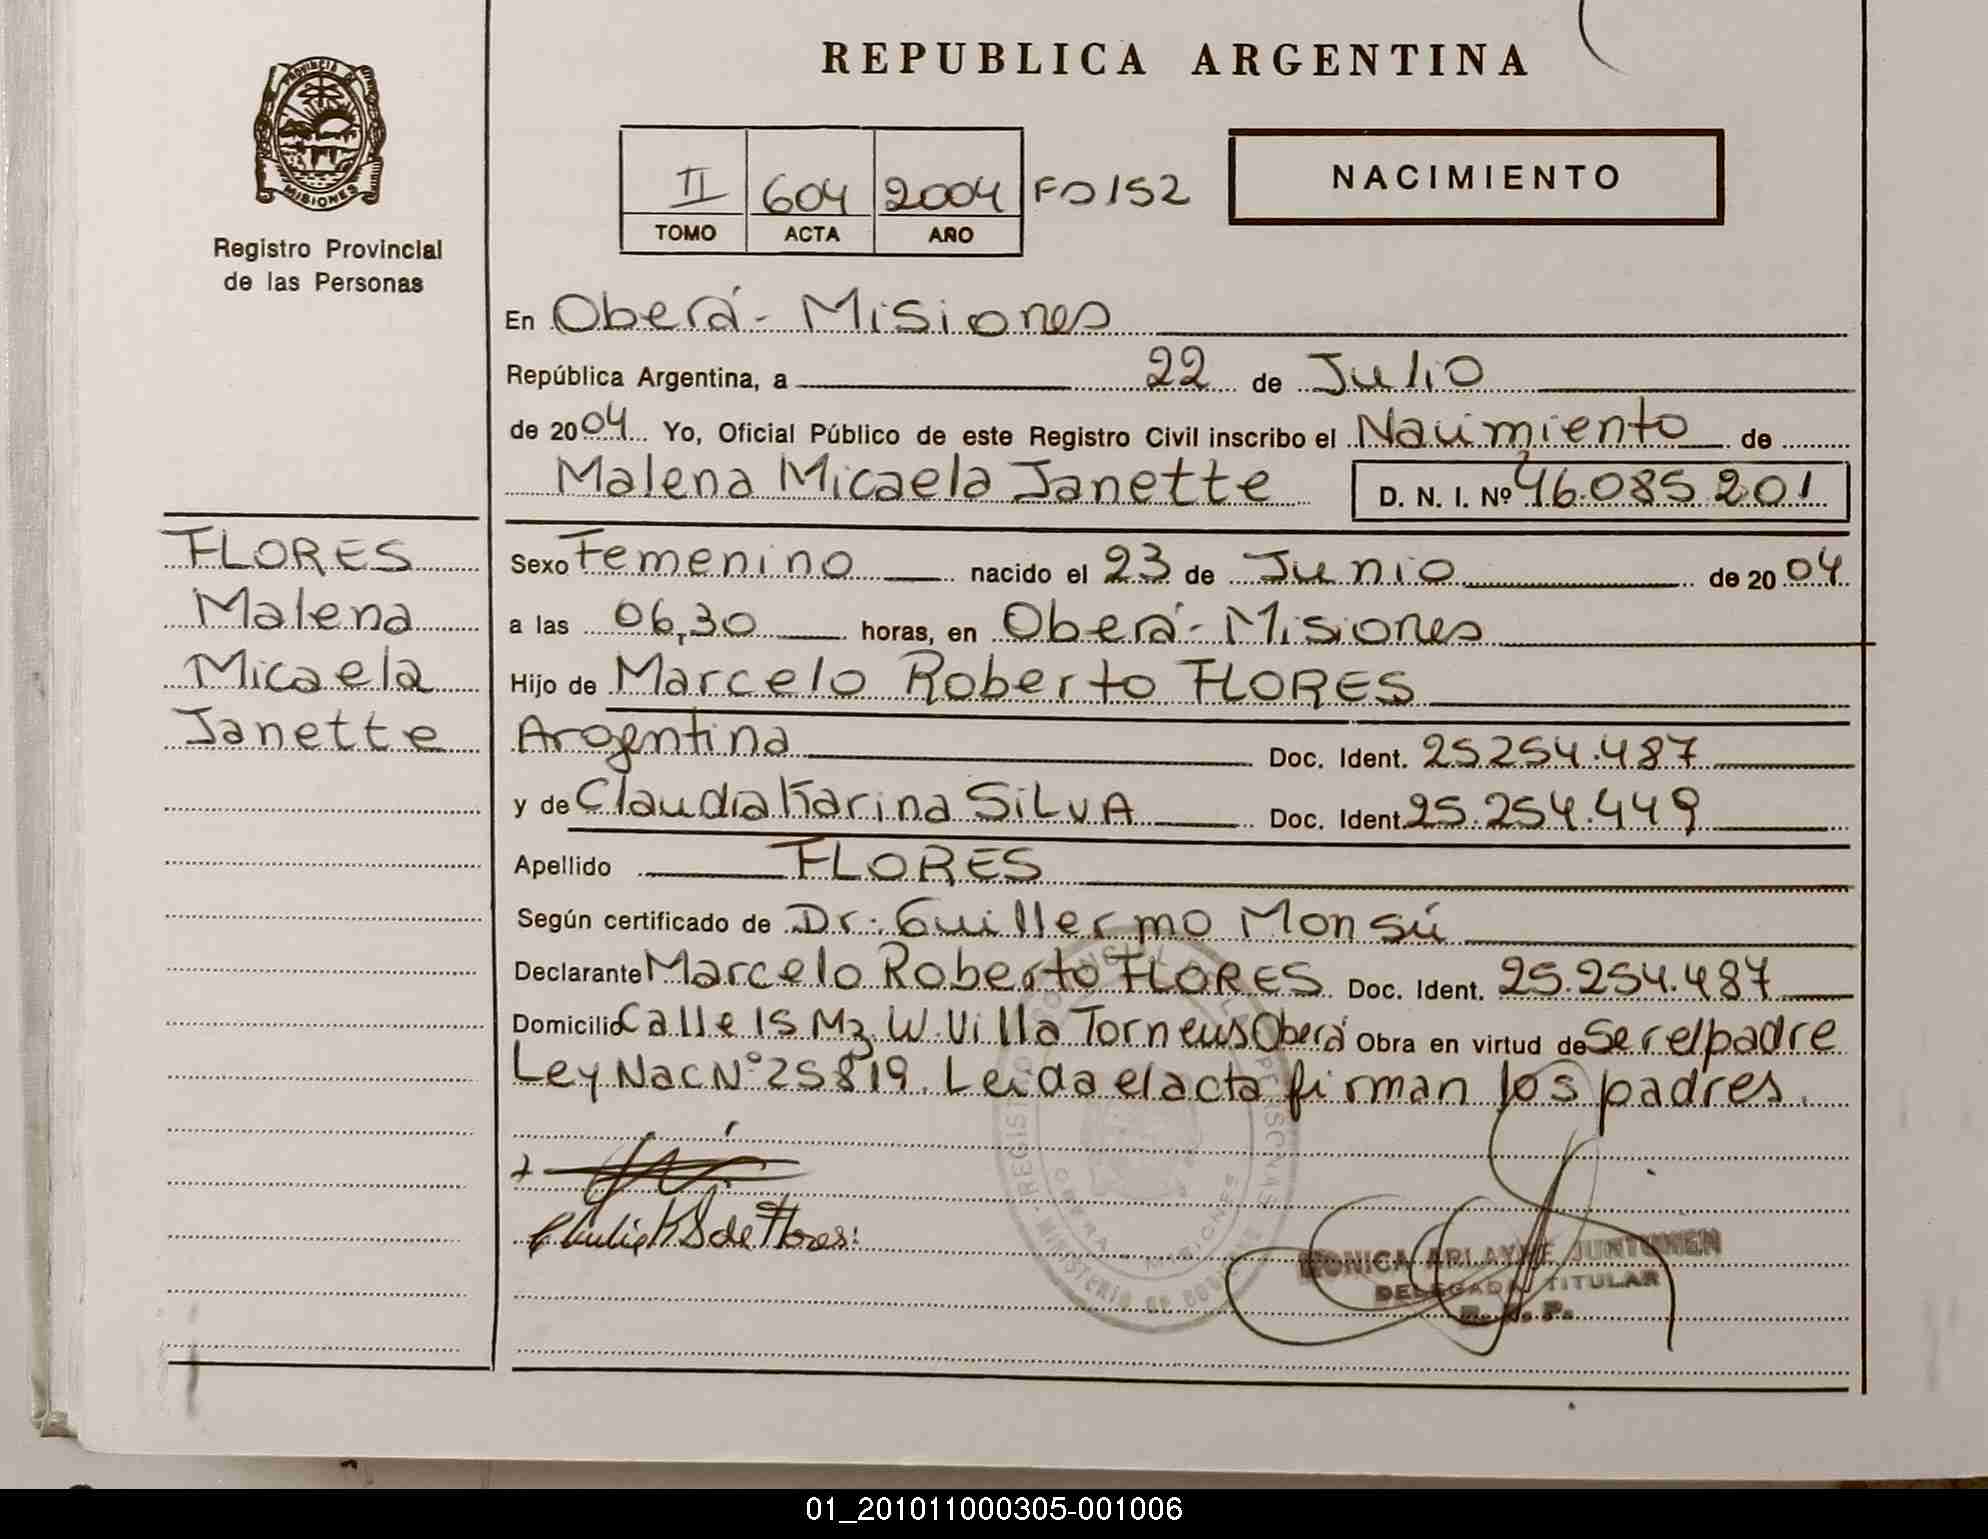 REPUBLICA ARGENTINA
PROVINCIA DE
MISIONES
Registro Provincial
de las Personas
II 604 2004 Fº 152
TOMO ACTA AÑO
NACIMIENTO
En Oberá - Misiones
República Argentina, a 22 de Julio
de 2004 Yo, Oficial Público de este Registro Civil inscribo el Nacimiento de
Malena Micaela Janette D. N. I. Nº 46.085.201
FLORES
Malena
Micaela
Janette
Sexo Femenino nacido el 23 de Junio de 2004
a las 06,30 horas, en Oberá - Misiones
Hijo de Marcelo Roberto FLORES
Argentina Doc. Ident. 25.254.487
y de Claudia Karina SILVA Doc. Ident. 25.254.449
Apellido FLORES
Según certificado de Dr. Guillermo Monsú
Declarante Marcelo Roberto FLORES Doc. Ident. 25.254.487
Domicilio Calle 15 Mz. W. Villa Torneus Oberá Obra en virtud de Ser el padre
Ley Nac Nº 25819. Leida el acta firman los padres.
MONICA ARLAYNE JUNTUNEN
DELEGADA TITULAR
01_201011000305-001006